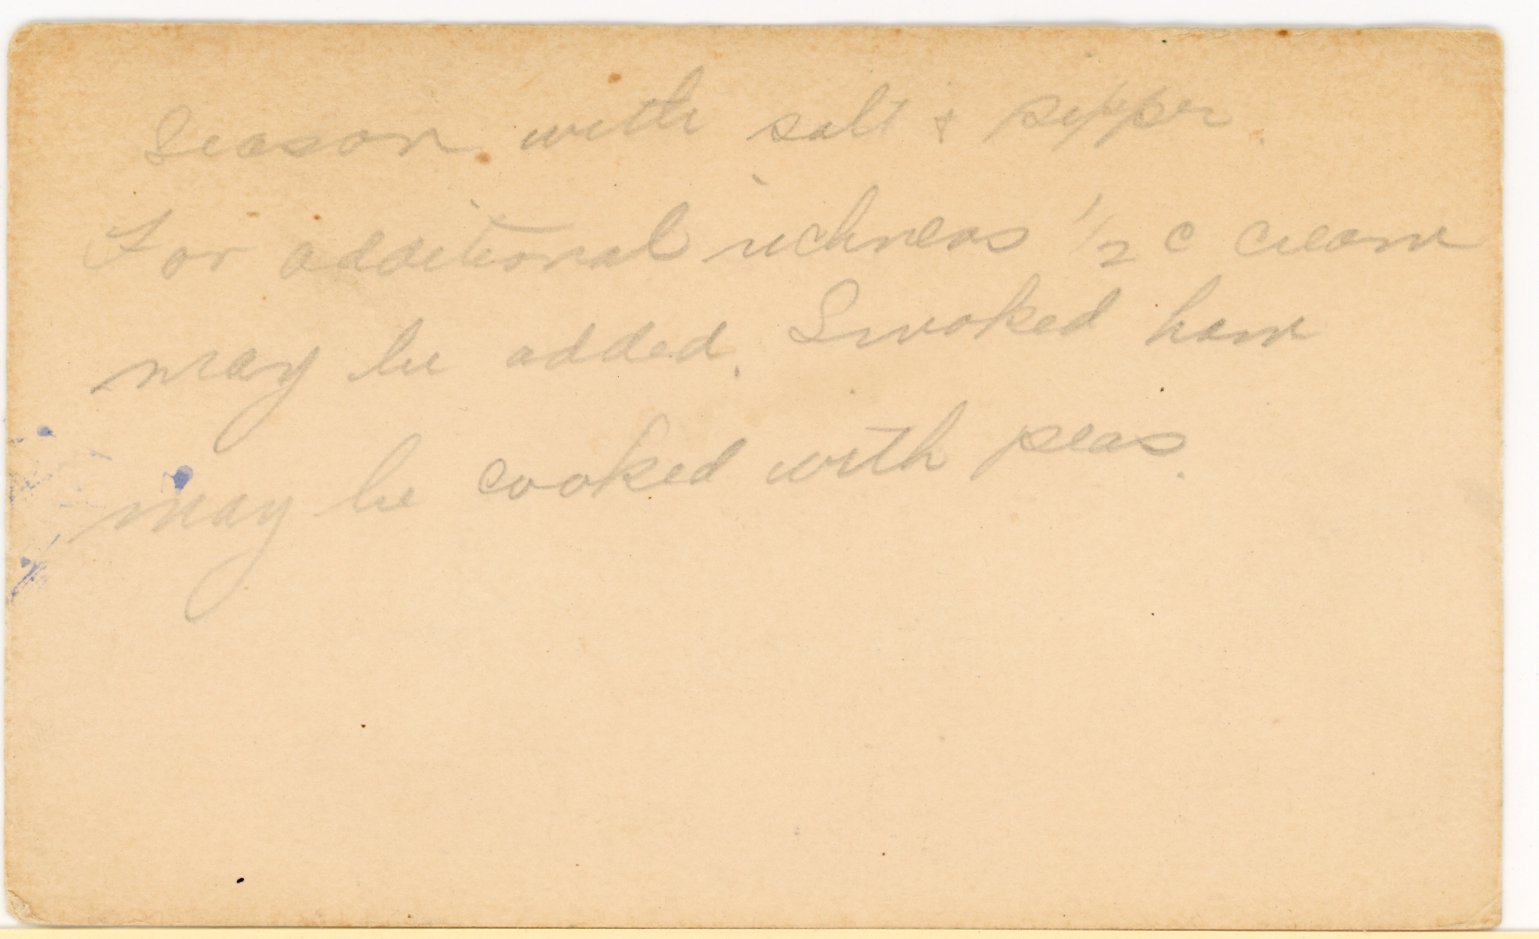 Season with salt & pepper.
For additional richness 1/2 c cream
may be added. Smoked ham
may be cooked with peas.